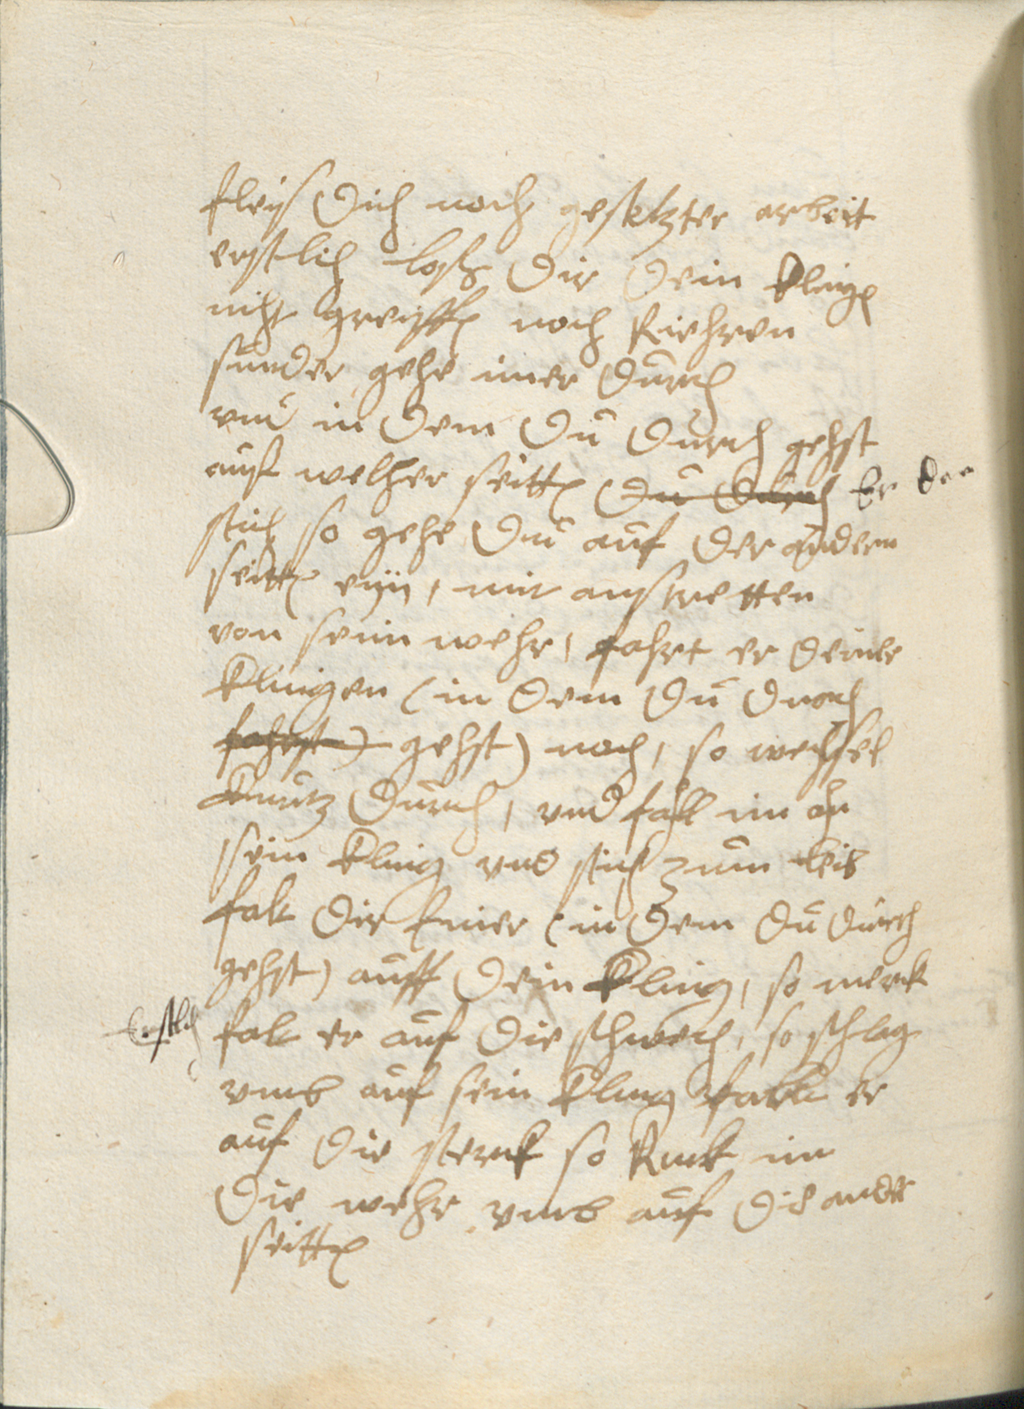 fleijs dich noch gesetzter arbeit
erstlich losß dir dein klingen
nicht greyffen noch Riehren
sunder gehe imer durch
vnd in dem du durch gehst
auf welher seitten du durch Er den
stich so gehe du auf der andern
seitten eyn, mit austretten
von seim wehr, fahrt er deiner
klingen (in dem du durch
fahrst) gehst) nach, so wechsel
kurtz durch, vnd fall im an
sein kling vnd stich zum leib
falt dir Einer (in dem du durch
gehst) auff dein kling, so merck
Erstlich falt er auf die schwech, so schlag
vmb auf sein kling falt er
auf die sterck so Ruck im
die wehr vmb auf die ander
seitten